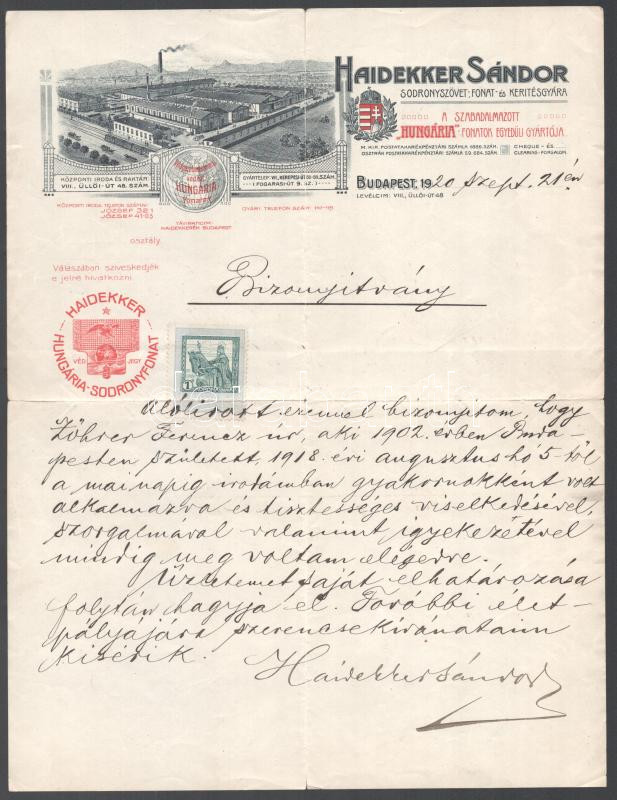 HAIDEKKER SÁNDOR
SODRONYSZÖVET-, FONAT- ÉS KERITÉSGYÁRA
A SZABADALMAZOTT
"HUNGÁRIA" FONATOK EGYEDÜLI GYÁRTÓJA.
M. KIR. POSTATAKARÉKPÉNZTÁRI SZÁMLA
OSZTRÁK POSTATAKARÉKPÉNZTÁRI SZÁMLA
CHEQUE - ÉS
CLEARING-FORGALOM.
KÖZPONTI IRODA ÉS RAKTÁR
VIII., ÜLLŐI-ÚT 48. SZÁM.
GYÁRTELEP: VII., KEREPESI-ÚT
( FOGARASI-ÚT 9. SZ. )
HUNGÁRIA
fonatok
BUDAPEST, 1920 Szept. 21én
LEVÉLCIM: VIII., ÜLLŐI-ÚT 48
KÖZPONTI IRODA TELEFON SZÁMAI:
JÓZSEF 321
JÓZSEF 41-03
TÁVIRATCIM:
HAIDEKKERÉK BUDAPEST
GYÁRI TELEFON SZÁM:
osztály.
Válaszában sziveskedjék
e jelre hivatkozni.
Bizonyitvány
HAIDEKKER
VÉD JEGY
HUNGÁRIA-SODRONYFONAT
1
Alólirott ezennel bizonyitom, hogy
Zöhrer Ferencz úr, aki 1902. évben Buda-
pesten született, 1918. évi augusztus hó 5-től
a mai napig irodámban gyakornokként volt
alkalmazva és tisztességes viselkedésével,
szorgalmával valamint igyekezetével
mindig meg voltam elégedve.
Üzletemet saját elhatározása
folytán hagyja el. További élet-
pályájára szerencsekivánataim
kisérik.
Haidekker Sándor